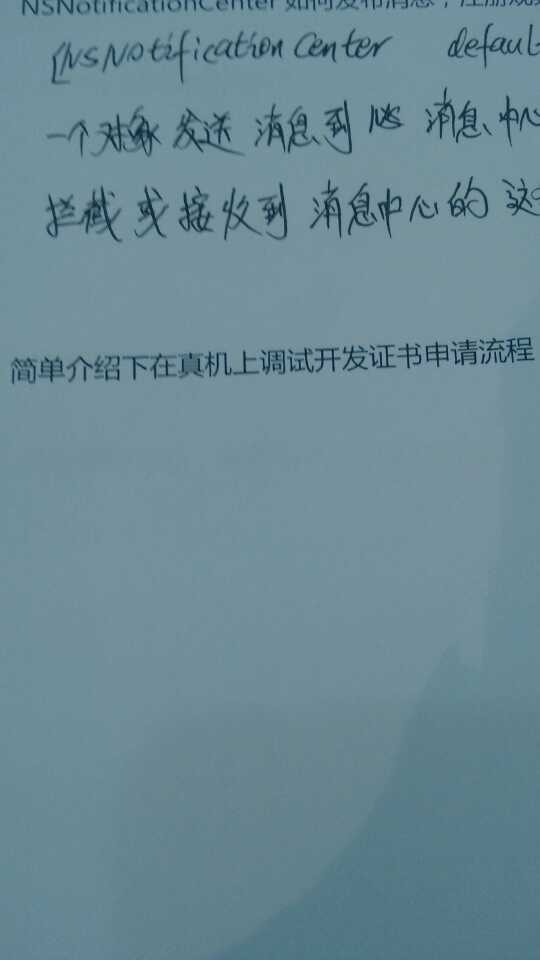 NSNotificationCenter 如何发布消息，注册观
[NSNotification Center defaul
一个对象 发送 消息到 NS 消息中心
拦截 或 接收到 消息中心的 这
简单介绍下在真机上调试开发证书申请流程